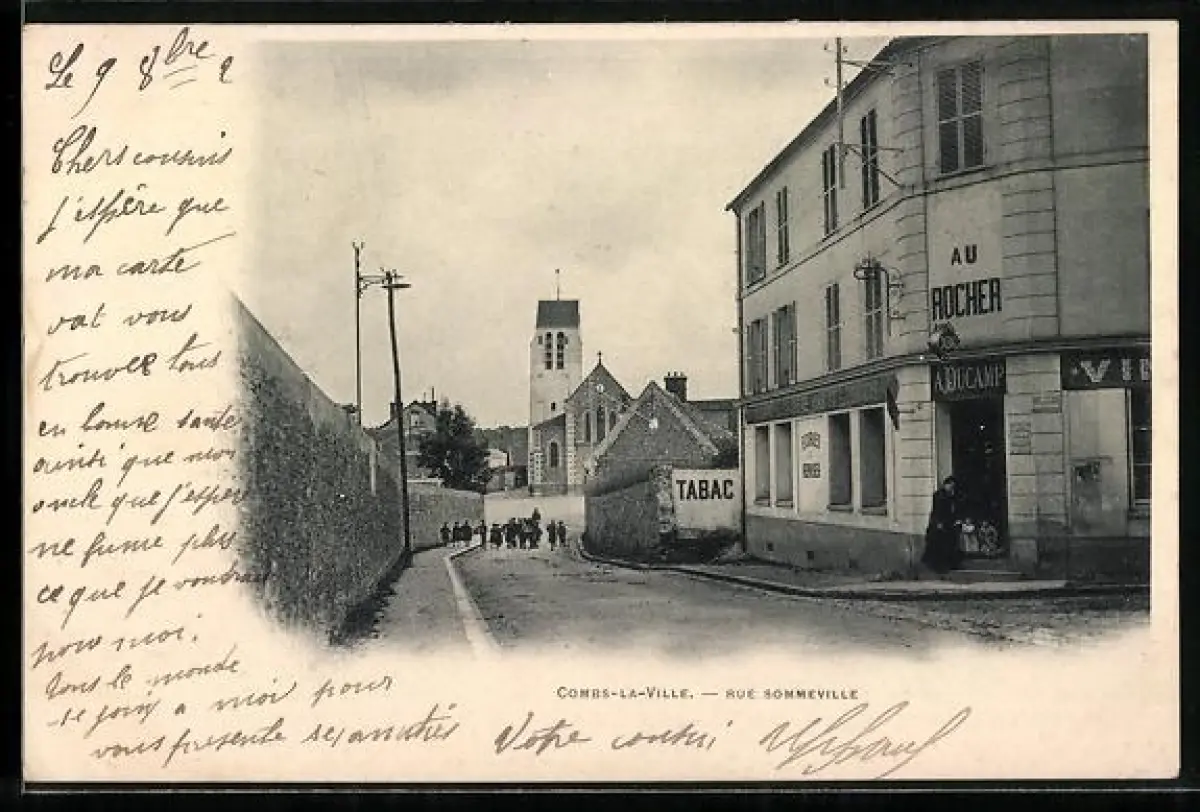 Le 9 8bre 2
Chers cousins
J'espère que
ma carte
vat vous
trouvee tous
en bonne sante
ainsi que mon
oncle que j'espere
ne fume plus
ce que je voudrais
pour moi.
tous le monde
se join a moi pour
vous presente ses amitiés
Votre cousin
AU
ROCHER
A. DUCAMP
VI
TABAC
COMBS-LA-VILLE. — RUE SOMMEVILLE